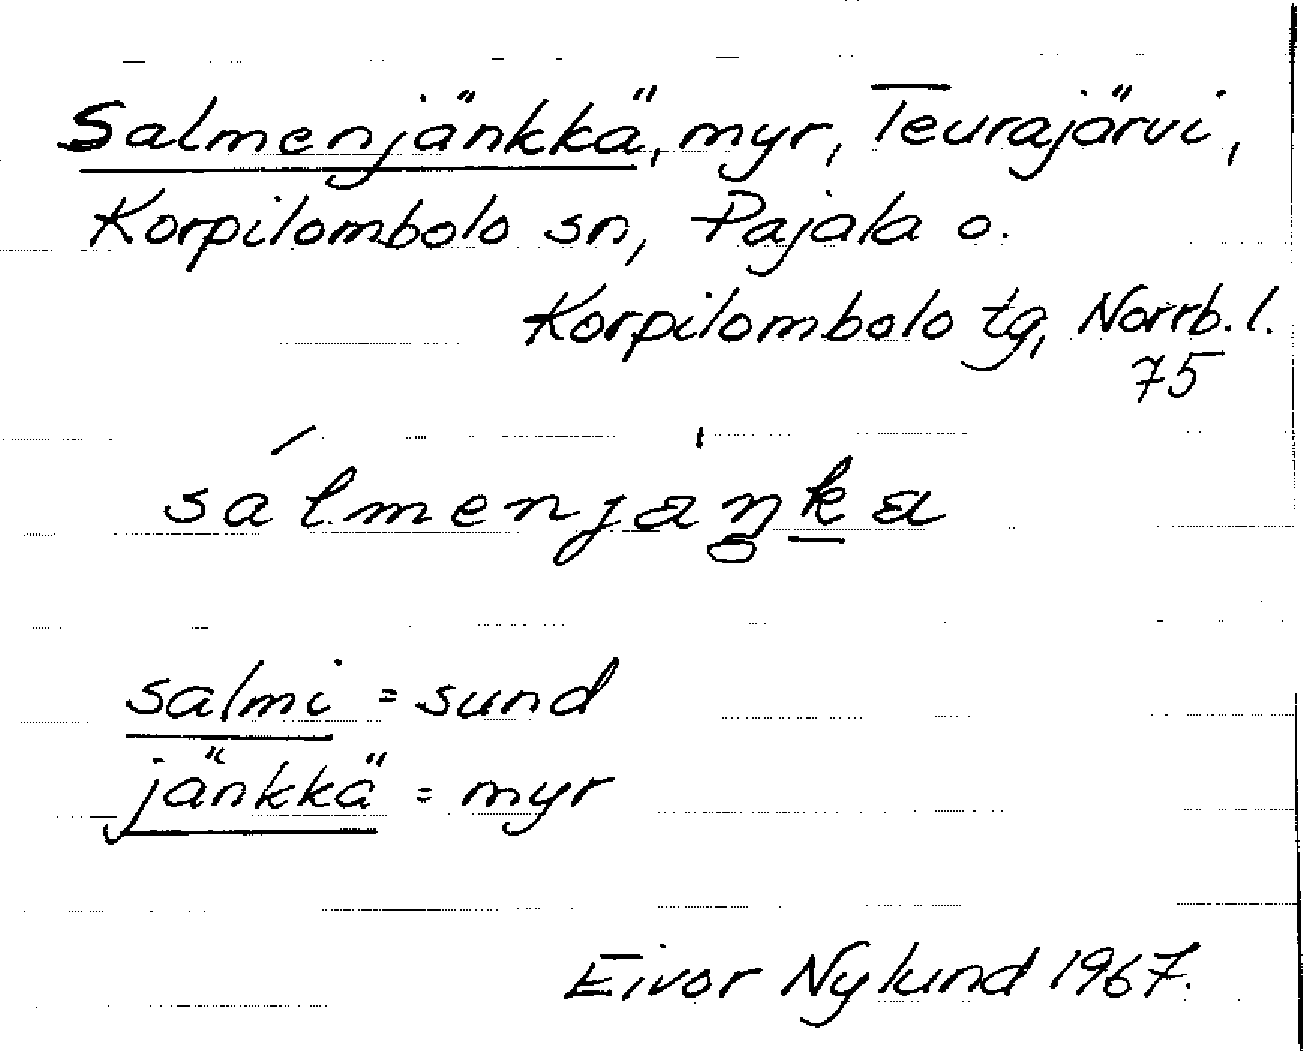 Salmenjänkkä, myr, Teurajärvi,
Korpilombolo sn, Pajala o.
Korpilombolo tg, Norrb. l.
75
salmi = sund
jänkkä = myr
Eivor Nylund 1967.